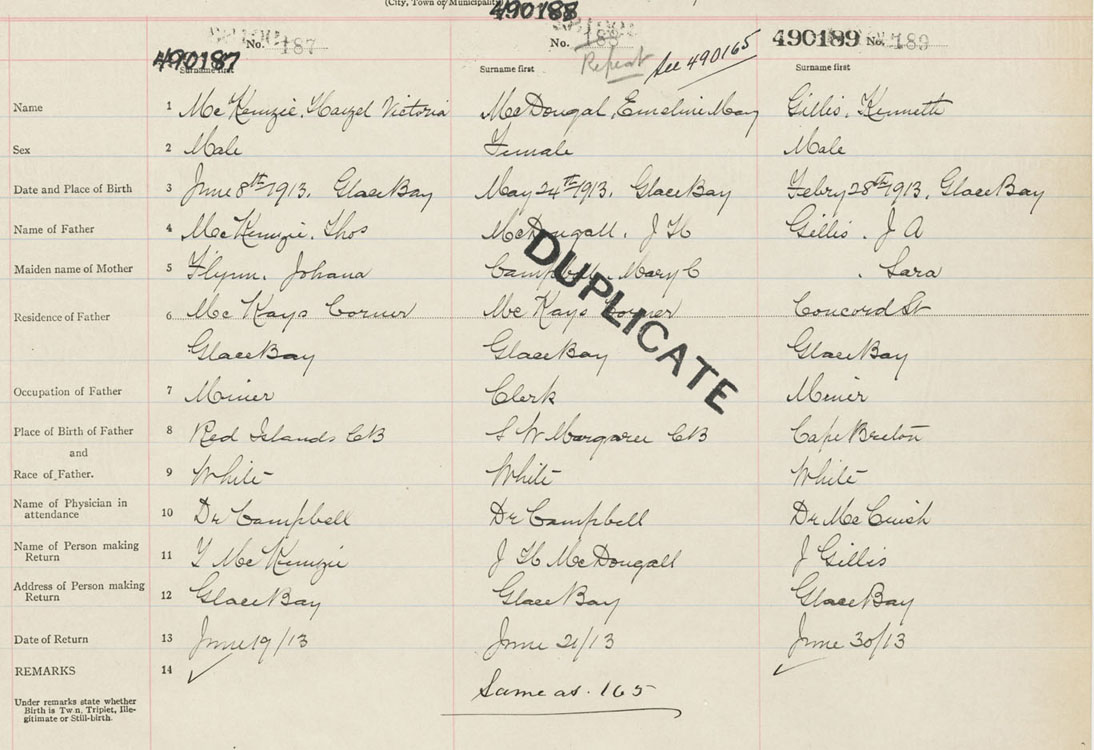 (City, Town or Municipality)
490187 No. 187
490188 No. 188 Repeat See 490165
490189 No. 189
Surname first Surname first Surname first
Name 1 McKenzie, Hazel Victoria McDougal, Emeline May Gillis, Kenneth
Sex 2 Male Female Male
Date and Place of Birth 3 June 8th 1913, Glace Bay May 24th 1913, Glace Bay Febry 28th 1913, Glace Bay
Name of Father 4 McKenzie, Thos McDougall, J H Gillis, J A
Maiden name of Mother 5 Flynn, Johana Campbell, Mary C , Sara
Residence of Father 6 McKays Corner McKays Corner Concord St
Glace Bay Glace Bay Glace Bay
DUPLICATE
Occupation of Father 7 Miner Clerk Miner
Place of Birth of Father 8 Red Islands CB S W Margaree CB Cape Breton
and
Race of Father. 9 White White White
Name of Physician in
attendance 10 Dr Campbell Dr Campbell Dr McCuish
Name of Person making
Return 11 T McKenzie J H McDougall J Gillis
Address of Person making
Return 12 Glace Bay Glace Bay Glace Bay
Date of Return 13 June 19/13 June 21/13 June 30/13
REMARKS 14
Same as 165
Under remarks state whether
Birth is Twin, Triplet, Ille-
gitimate or Still-birth.